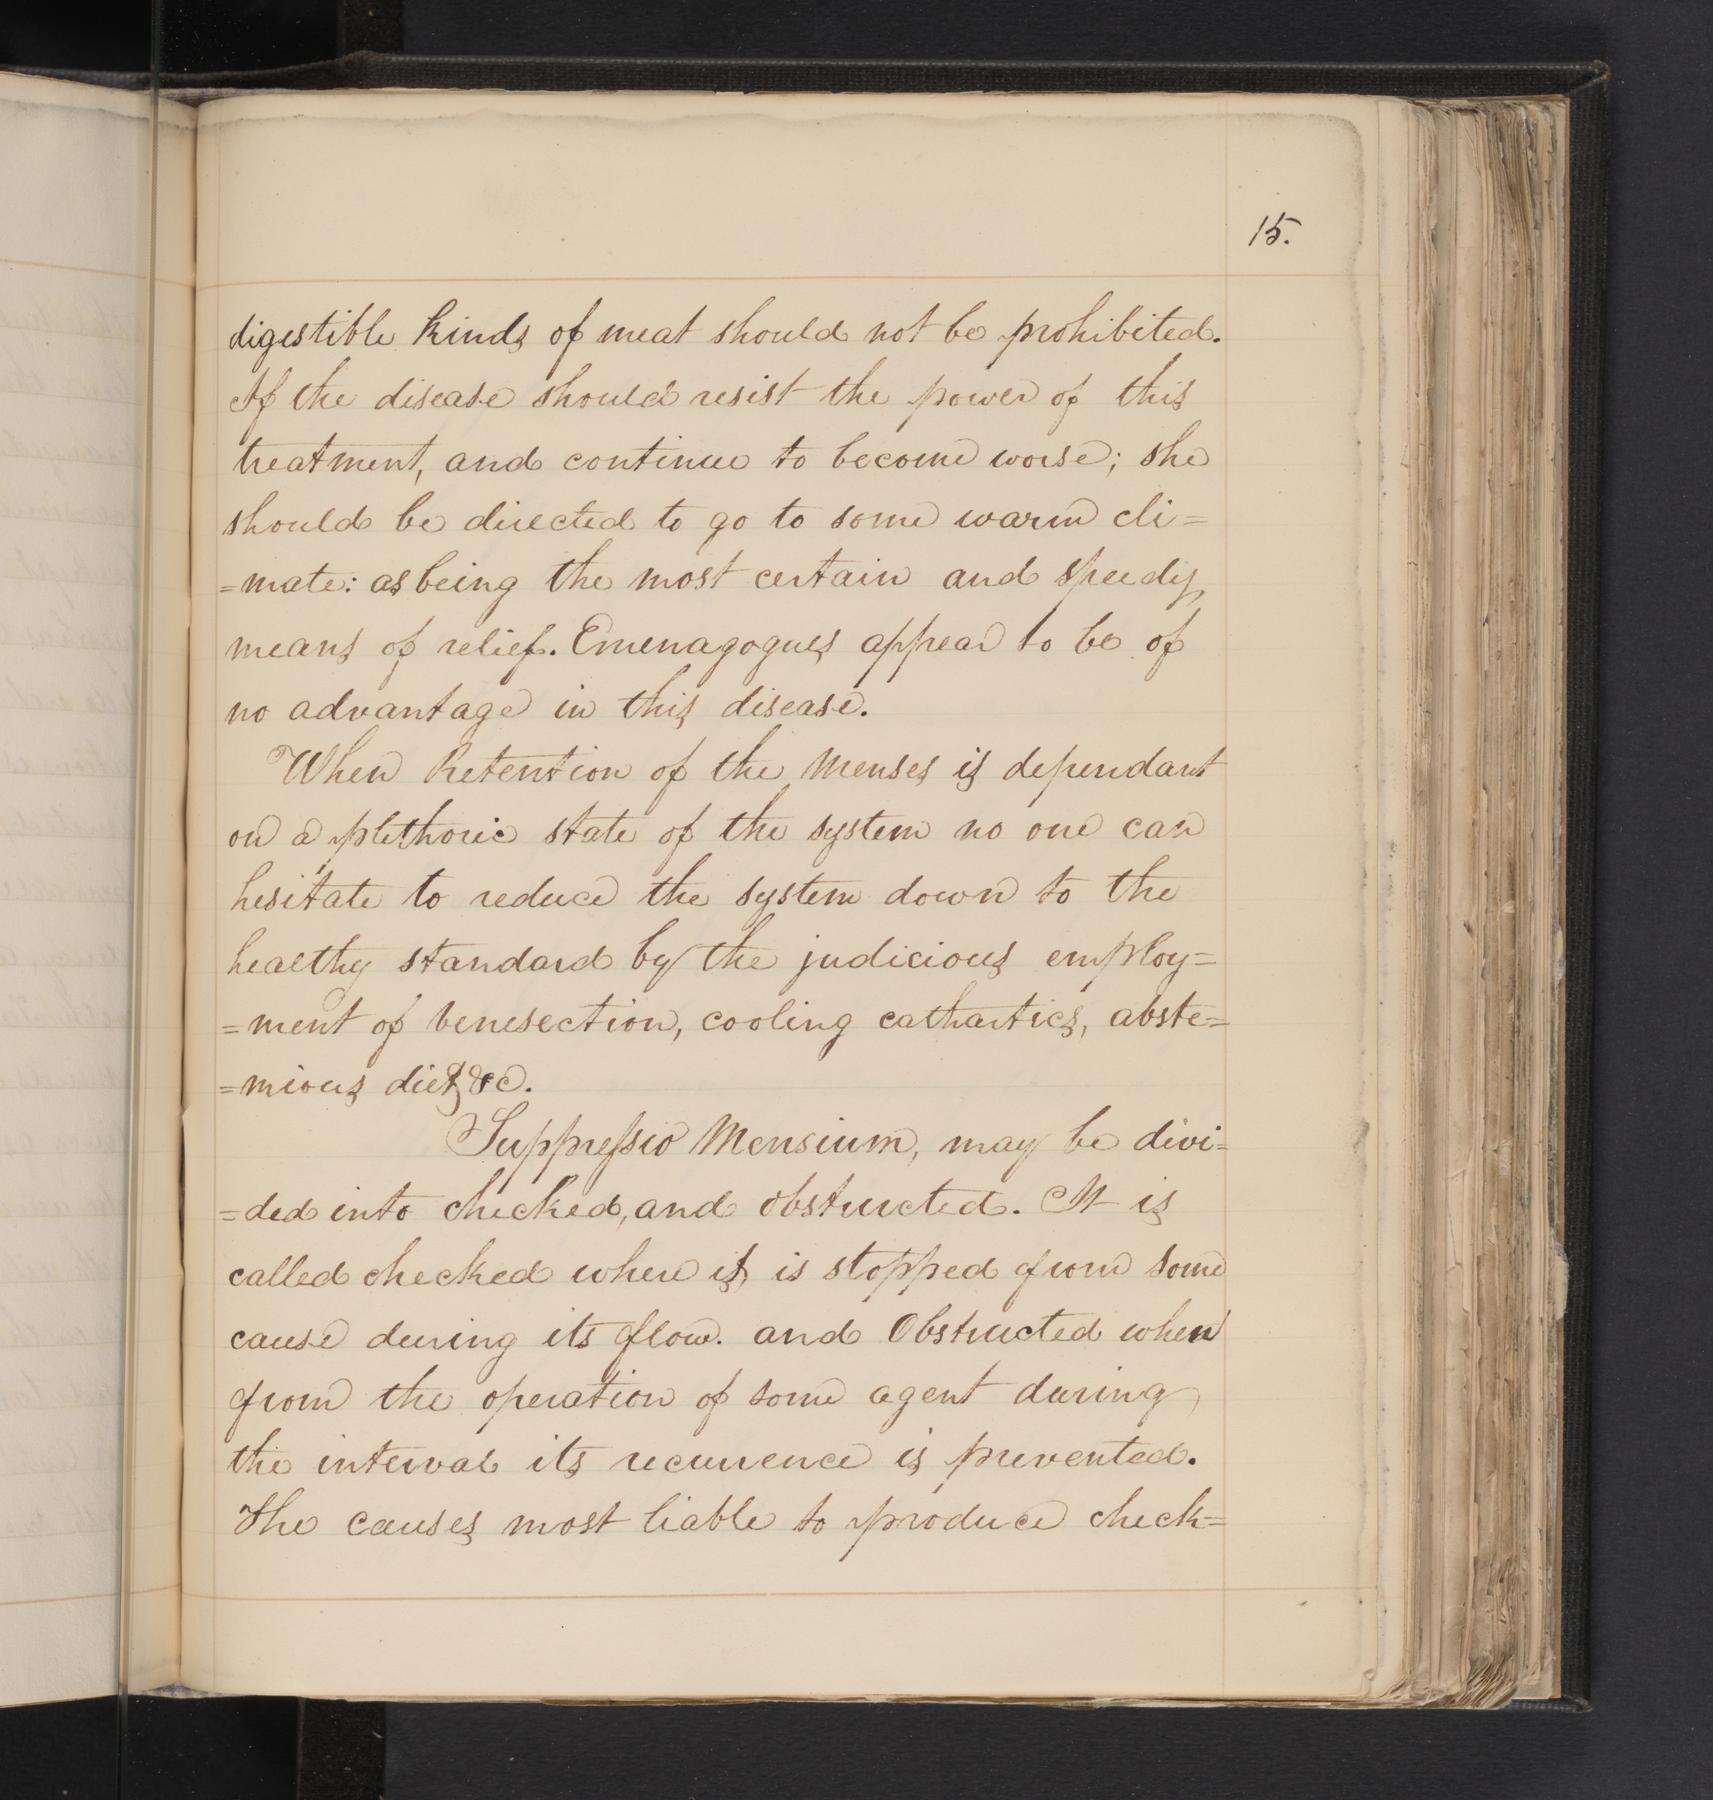 15.
digestible kinds of meat should not be prohibited.
If the disease should resist the power of this
treatment, and continue to become worse; she
should be directed to go to some warm cli=
=mate: as being the most certain and speedy
means of relief. Emenagogues appear to be of
no advantage in this disease.
When Retention of the Menses is dependant
on a plethoric state of the system no one can
hesitate to reduce the system down to the
healthy standard by the judicious employ=
=ment of venesection, cooling cathartics, abste=
=mious diet, &c.
Suppressio Mensium, may be divi=
=ded into checked, and obstructed. It is
called checked when it is stopped from some
cause during its flow. and Obstructed when
from the operation of some agent during
the interval its recurrence is prevented.
The causes most liable to produce check=